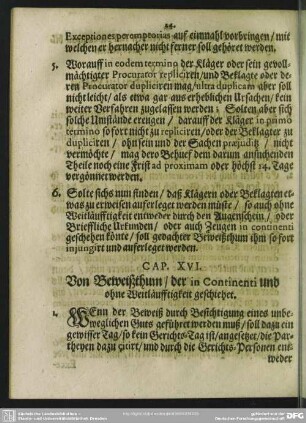 24.
Exceptiones peremptorias auf einmahl vorbringen / mit
welchen er hernacher nicht ferner soll gehöret werden.
5. Worauff in eodem termino der Kläger oder sein gevoll-
mächtigter Procurator repliciren / und Beklagte oder de-
ren Procurator dupliciren mag / ultra duplicam aber soll
nicht leicht / als etwa gar aus erheblichen Ursachen / kein
weiter Verfahren zugelassen werden; Solten aber sich
solche Umstände ereugen / darauff der Kläger in primo
termino sofort nicht zu repliciren / oder der Beklagter zu
dupliciren / ohn sein und der Sachen præjuditz / nicht
vermöchte / mag dero Behuef dem darum ansuchenden
Theile noch eine Frist ad proximam oder höchst 14. Tage
vergönnet werden.
6. Solte sichs nun finden / daß Klägern oder Beklagten et-
was zu erweisen aufferleget werden müste / so auch ohne
Weitläufftigkeit entweder durch den Augenschein / oder
Brieffliche Urkunden / oder auch Zeugen in continenti
geschehen könte / soll gedachter Beweißthum ihm so fort
injungirt und aufferleget werden.
CAP. XVI.
Von Beweißthum / der in Continenti und
ohne Weitläufftigkeit geschiehet.
1. WEnn der Beweiß durch Besichtigung eines unbe-
weglichen Guts geführet werden muß / soll dazu ein
gewisser Tag / so kein Gerichts-Tag ist / angesetzet / die Par-
theyen dazu citirt / und durch die Gerichts-Personen ent-
weder